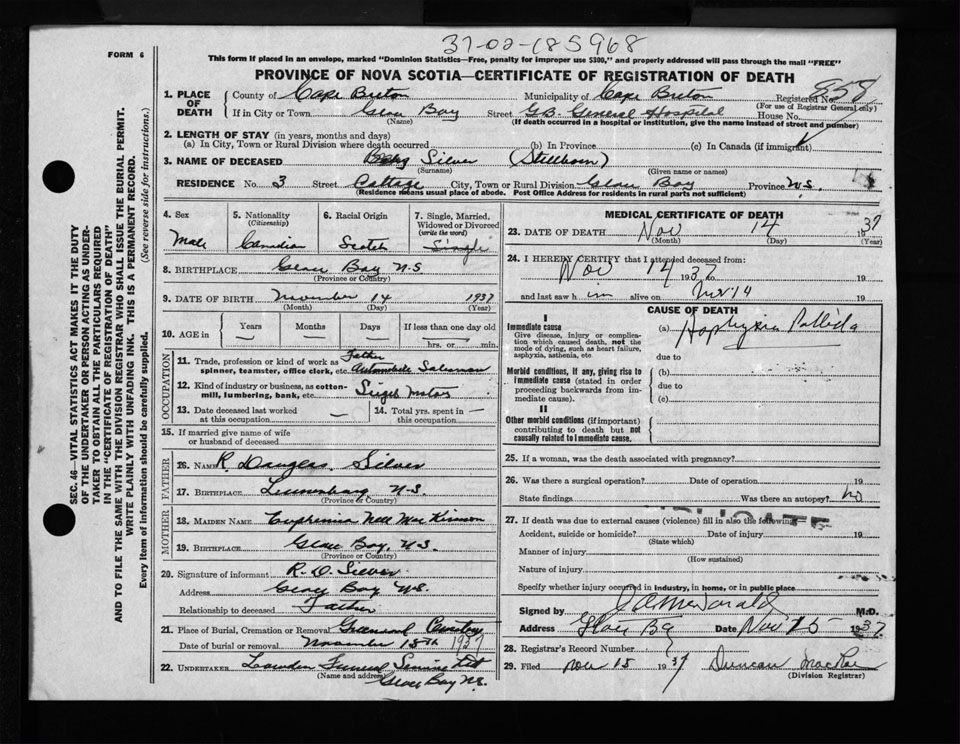 37-02-185968
FORM 6
This form if placed in an envelope, marked "Dominion Statistics—Free, penalty for improper use $300," and properly addressed will pass through the mail "FREE"
PROVINCE OF NOVA SCOTIA—CERTIFICATE OF REGISTRATION OF DEATH
SEC. 46—VITAL STATISTICS ACT MAKES IT THE DUTY
OF THE UNDERTAKER OR PERSON ACTING AS UNDER-
TAKER TO OBTAIN ALL THE PARTICULARS REQUIRED
IN THE "CERTIFICATE OF REGISTRATION OF DEATH"
AND TO FILE THE SAME WITH THE DIVISION REGISTRAR WHO SHALL ISSUE THE BURIAL PERMIT.
WRITE PLAINLY WITH UNFADING INK. THIS IS A PERMANENT RECORD.
Every item of information should be carefully supplied. (See reverse side for instructions.)
1. PLACE OF DEATH County of Cape Breton Municipality of Cape Breton Registered No. 858
(For use of Registrar General only)
If in City or Town Glace Bay Street G.B. General Hospital House No.
(Name) (If death occurred in a hospital or institution, give the name instead of street and number)
2. LENGTH OF STAY (in years, months and days)
(a) In City, Town or Rural Division where death occurred (b) In Province (c) In Canada (if immigrant)
3. NAME OF DECEASED Silver (Stillborn)
(Surname) (Given name or names)
RESIDENCE No. 3 Street Cottage City, Town or Rural Division Glace Bay Province N.S.
(Residence means usual place of abode. Post Office Address for residents in rural parts not sufficient)
4. Sex Male
5. Nationality (Citizenship) Canadian
6. Racial Origin Scotch
7. Single, Married, Widowed or Divorced (write the word) Single
8. BIRTHPLACE Glace Bay N.S
(Province or Country)
9. DATE OF BIRTH November 14 1937
(Month) (Day) (Year)
10. AGE in Years Months Days If less than one day
hrs. or min.
OCCUPATION
11. Trade, profession or kind of work as spinner, teamster, office clerk, etc. Father Automobile Salesman
12. Kind of industry or business, as cotton-mill, lumbering, bank, etc. Motors
13. Date deceased last worked at this occupation —
14. Total yrs. spent in this occupation —
15. If married give name of wife or husband of deceased
FATHER
16. NAME R Douglas Silver
17. BIRTHPLACE Lunenburg, N.S.
(Province or Country)
MOTHER
18. MAIDEN NAME Nell MacKinnon
19. BIRTHPLACE Glace Bay, N.S.
(Province or Country)
20. Signature of informant R. D. Silver
Address Glace Bay N.S.
Relationship to deceased Father
21. Place of Burial, Cremation or Removal Greenwood Cemetery
Date of burial or removal November 15th 1937
22. UNDERTAKER Funeral Service Ltd
(Name and address) Glace Bay N.S.
MEDICAL CERTIFICATE OF DEATH
23. DATE OF DEATH Nov 14 1937
(Month) (Day) (Year)
24. I HEREBY CERTIFY that I attended deceased from:
Nov 14 1937 to 19
and last saw him alive on Nov 14 19
CAUSE OF DEATH
I
Immediate cause (a) Asphyxia Pallida
Give disease, injury or complication which caused death, not the mode of dying, such as heart failure, asphyxia, asthenia, etc due to
Morbid conditions, if any, giving rise to immediate cause (stated in order proceeding backwards from immediate cause). (b)
due to
(c)
II
Other morbid conditions (if important) contributing to death but not causally related to immediate cause.
25. If a woman, was the death associated with pregnancy?
26. Was there a surgical operation? Date of operation 19
State findings Was there an autopsy? No
27. If death was due to external causes (violence) fill in also the following
Accident, suicide or homicide? Date of injury 19
(State which)
Manner of injury
(How sustained)
Nature of injury
Specify whether injury occurred in industry, in home, or in public place
Signed by McDonald M.D.
Address Glace Bay Date Nov 15 1937
28. Registrar's Record Number
29. Filed Nov 15 1937 Duncan MacRae
(Division Registrar)